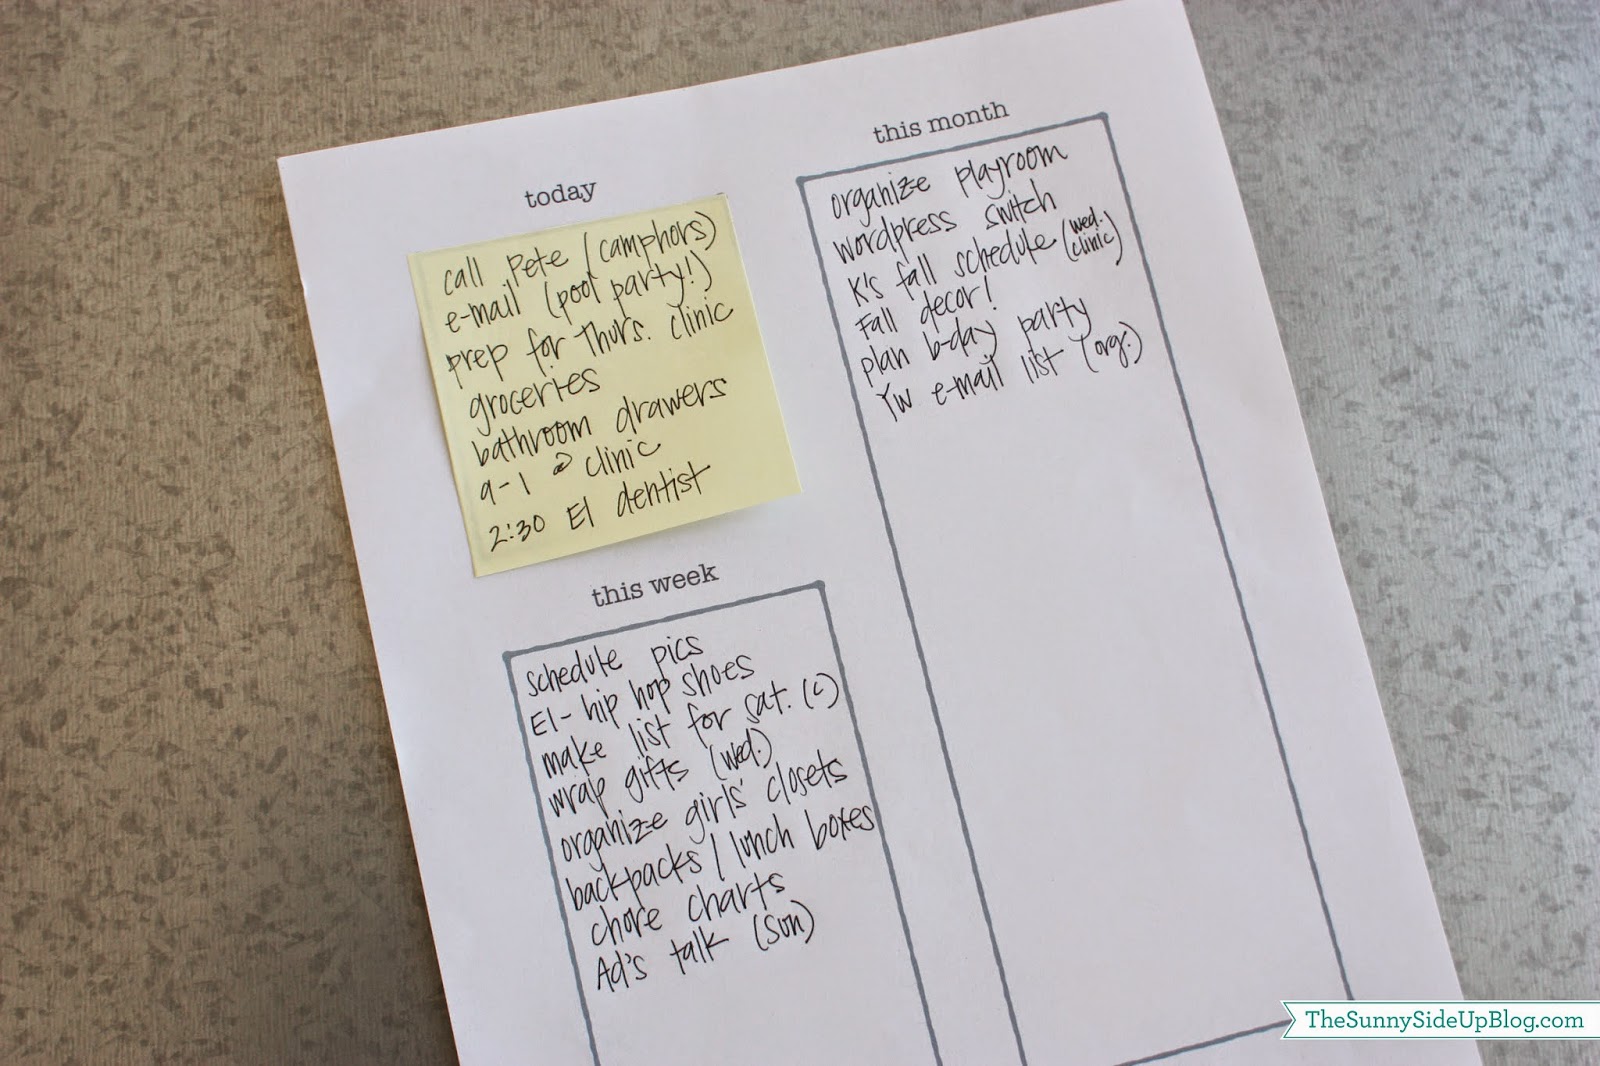 today
call Pete (camphors)
e-mail (pool party!)
prep for Thurs. clinic
groceries
bathroom drawers
9-1 @ clinic
2:30 El dentist
this week
schedule pics
El- hip hop shoes
make list for sat. (c)
wrap gifts (wed.)
organize girls' closets
backpacks / lunch boxes
chore charts
Ad's talk (sun)
this month
organize playroom
wordpress switch
K's fall schedule (wed. clinic)
Fall decor!
plan b-day party
YW e-mail list (org.)
TheSunnySideUpBlog.com